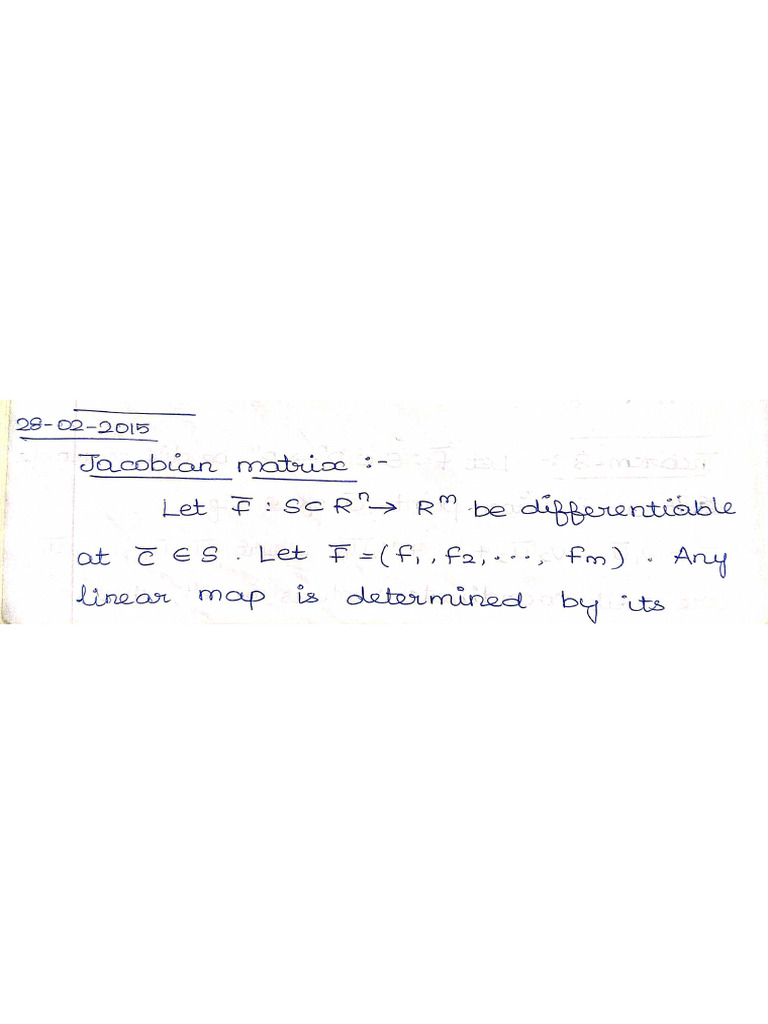 28-02-2015
Jacobian matrix :-
Let F̅ : S⊂Rⁿ→ Rᵐ be differentiable
at c̅ ∈ S. Let F̅ = (f₁, f₂, ..., fₘ). Any
linear map is determined by its